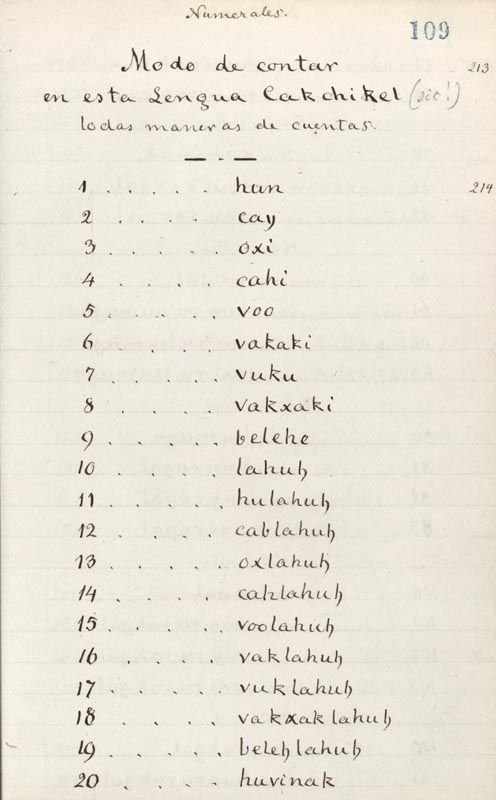 Numerales.
109
Modo de contar 213
en esta Lengua Cakchikel (sic!)
todas maneras de cuentas.
1 . . . . . hun 214
2 . . . . . cay
3 . . . . . oxi
4 . . . . . cahi
5 . . . . . voo
6 . . . . . vakaki
7 . . . . . vuku
8 . . . . . vakxaki
9 . . . . . belehe
10 . . . . . lahuh
11 . . . . . hulahuh
12 . . . . . cablahuh
13 . . . . . oxlahuh
14 . . . . . cahlahuh
15 . . . . . voolahuh
16 . . . . . vaklahuh
17 . . . . . vuklahuh
18 . . . . . vakxaklahuh
19 . . . . . belehlahuh
20 . . . . . huvinak